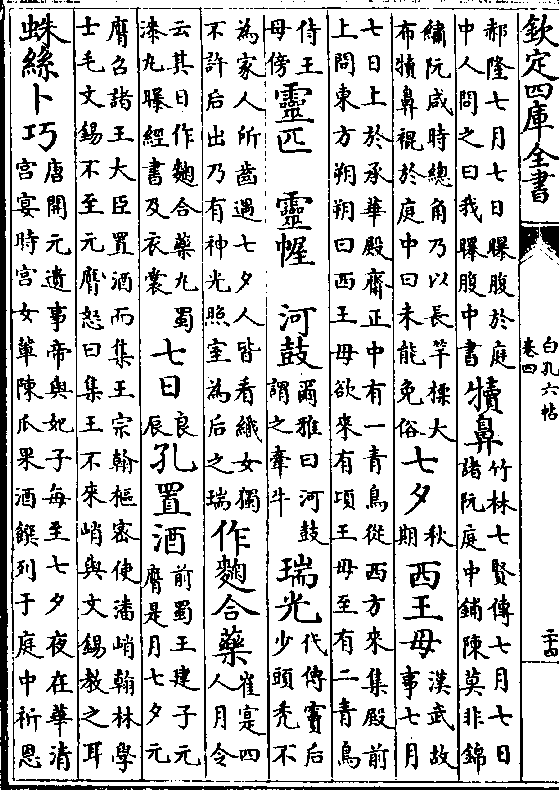 欽定四庫全書
白孔六帖
卷四
郝隆七月七日曝腹於庭
中人問之曰我曝腹中書
犢鼻
竹林七賢傳七月七日
諸阮庭中鋪陳莫非錦
繡阮咸時總角乃以長竿標大
布犢鼻褌於庭中曰未能免俗
七夕
秋
期
西王母
漢武故
事七月
七日上於承華殿齋正中有一青鳥從西方來集殿前
上問東方朔朔曰西王母欲來有頃王母至有二青鳥
侍王
母傍
靈匹
靈幄
河鼓
爾雅曰河鼓
謂之牽牛
瑞光
代傳竇后
少頭禿不
為家人所齒遇七夕人皆看織女獨
不許后出乃有神光照室為后之瑞
作麴合藥
崔寔四
人月令
云其日作麴合藥九蜀
漆丸曝經書及衣裳
七日
良
辰
孔置酒
前蜀王建子元
膺是月七夕元
膺召諸王大臣置酒而集王宗翰樞密使潘峭翰林學
士毛文錫不至元膺怒曰集王不來峭與文錫教之耳
蛛絲卜巧
唐開元遺事帝與妃子每至七夕夜在華清
宫宴時宫女輩陳瓜果酒饌列于庭中祈恩